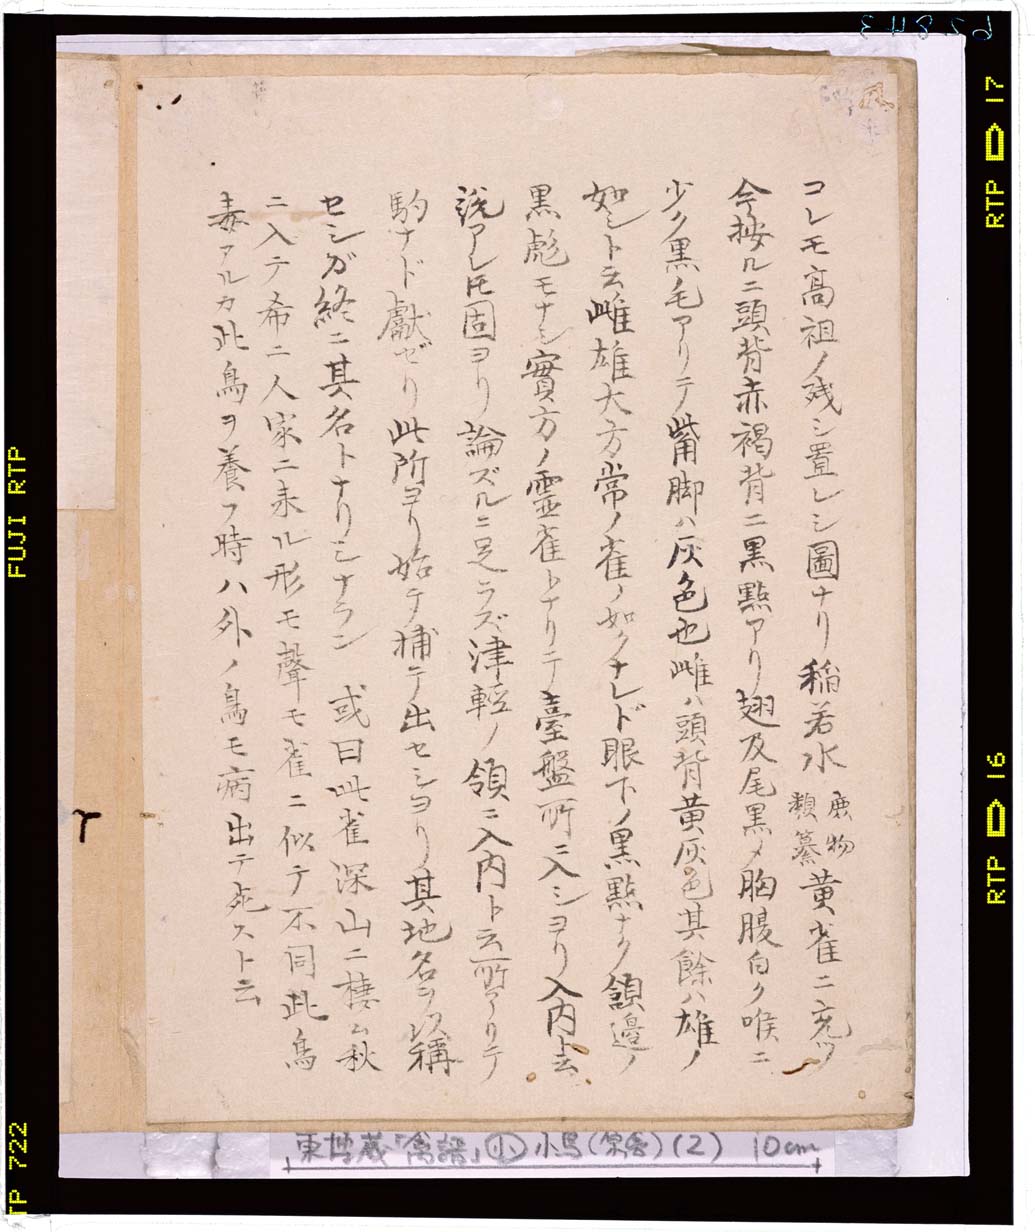 コレモ高祖ノ残シ置レシ圖ナリ稲若水 庶物類纂 黄雀ニ充ツ
今按ルニ頭背赤褐背ニ黒點アリ翅及尾黒ク胸腹白ク喉ニ
少ク黒毛アリテ觜脚ハ灰色也雌ハ頭背黄灰色其餘ハ雄ノ
如シト云雌雄大方常ノ雀ノ如クナレド眼下ノ黒點ナク頷邉ノ
黒彪モナシ實方ノ霊雀トナリテ臺盤所ニ入シヨリ入内ト云
説アレ𪜈固ヨリ論ズルニ足ラズ津軽ノ領ニ入内ト云所アリテ
駒ナド獻ゼリ此所ヨリ始テ捕テ出セシヨリ其地名ヲ以稱
セシガ終ニ其名トナリシナラン 或曰此雀深山ニ棲ム秋
ニ入テ希ニ人家ニ来ル形モ聲モ雀ニ似テ不同此鳥
毒アルカ此鳥ヲ養フ時ハ外ノ鳥モ病出テ死スト云
東博蔵「禽譜」 小鳥 (2) 10cm
FUJI RTP
TP 722
RTP 17
RTP 16